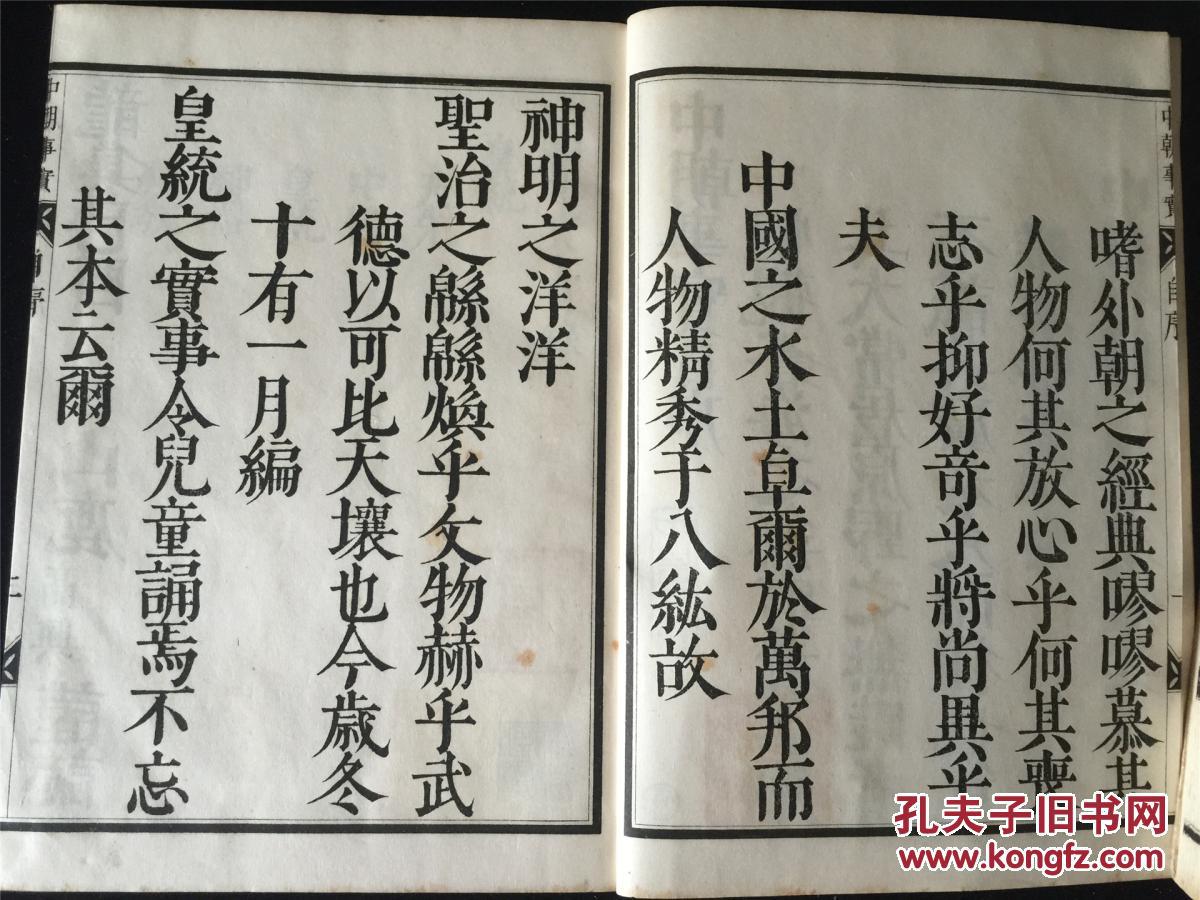 中朝事實
自序
嗜外朝之經典嘐嘐慕其
人物何其放心乎何其喪
志乎抑好奇乎將尚異乎
夫
中國之水土卓爾於萬邦而
人物精秀于八紘故
神明之洋洋
聖治之緜緜煥乎文物赫乎武
德以可比天壤也今歲冬
十有一月編
皇統之實事令兒童誦焉不忘
其本云爾
中朝事實
自序
二
孔夫子旧书网
www.kongfz.com